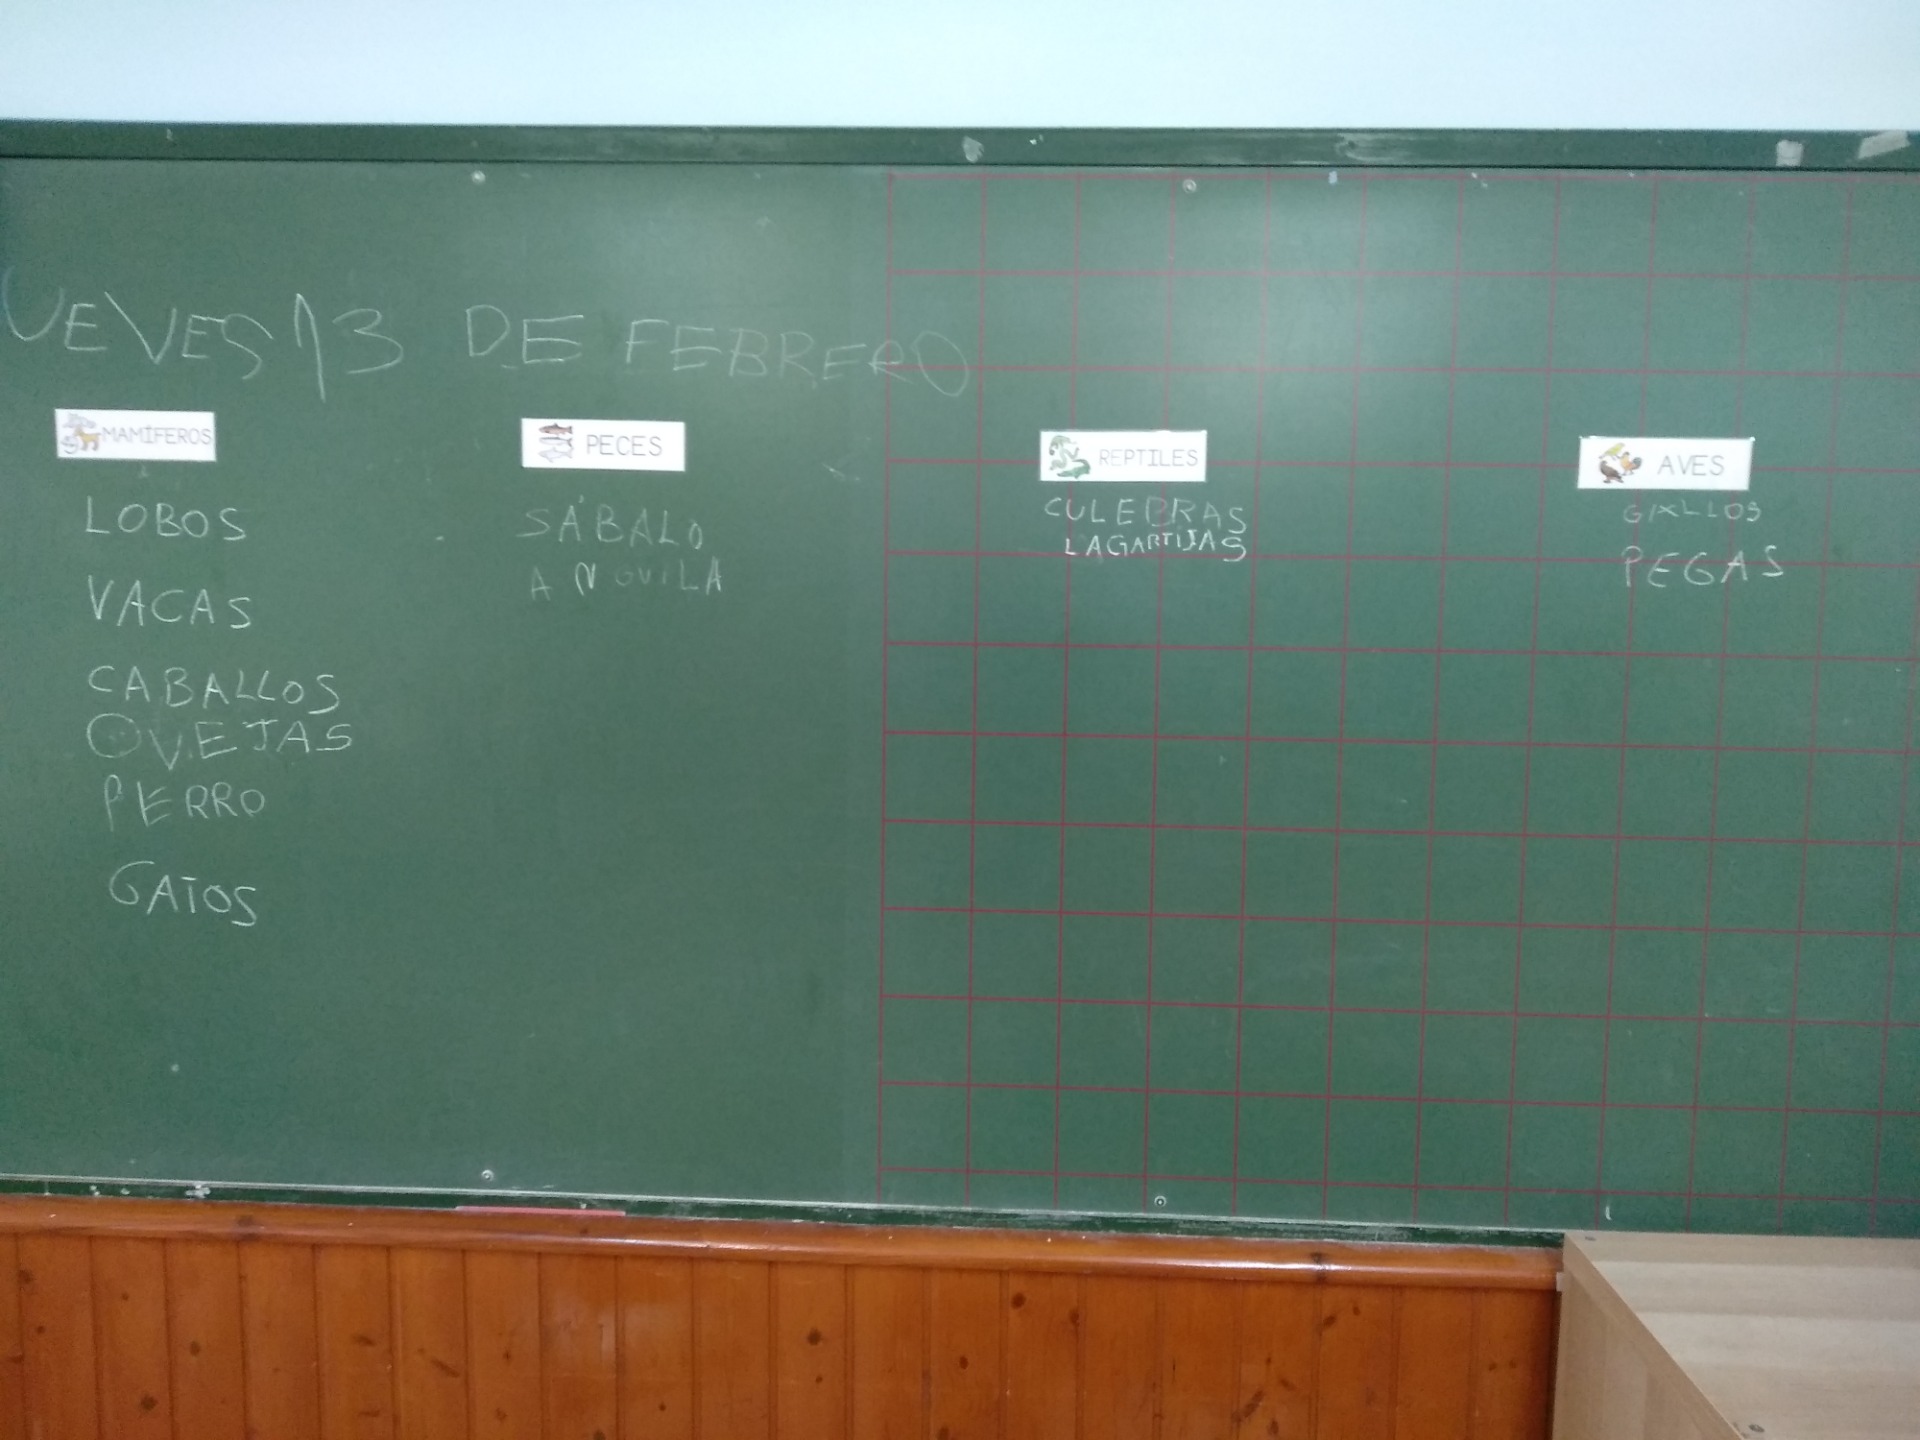 JUEVES 13 DE FEBRERO
MAMÍFEROS
LOBOS
VACAS
CABALLOS
OVEJAS
PERRO
GATOS
PECES
SÁBALO
ANGUILA
REPTILES
CULEBRAS
LAGARTIJAS
AVES
GALLOS
PEGAS